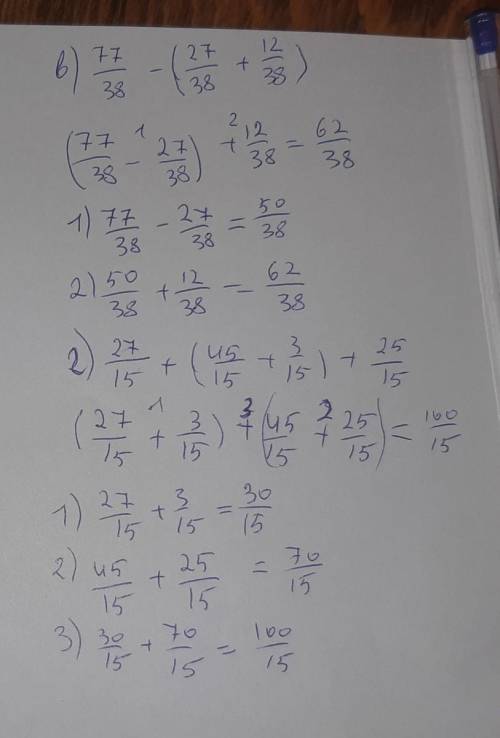 в) 77/38 - (27/38 + 12/38)
(77/38 -¹ 27/38) +² 12/38 = 62/38
1) 77/38 - 27/38 = 50/38
2) 50/38 + 12/38 = 62/38
г) 27/15 + (45/15 + 3/15) + 25/15
(27/15 +¹ 3/15) +³ (45/15 +² 25/15) = 100/15
1) 27/15 + 3/15 = 30/15
2) 45/15 + 25/15 = 70/15
3) 30/15 + 70/15 = 100/15